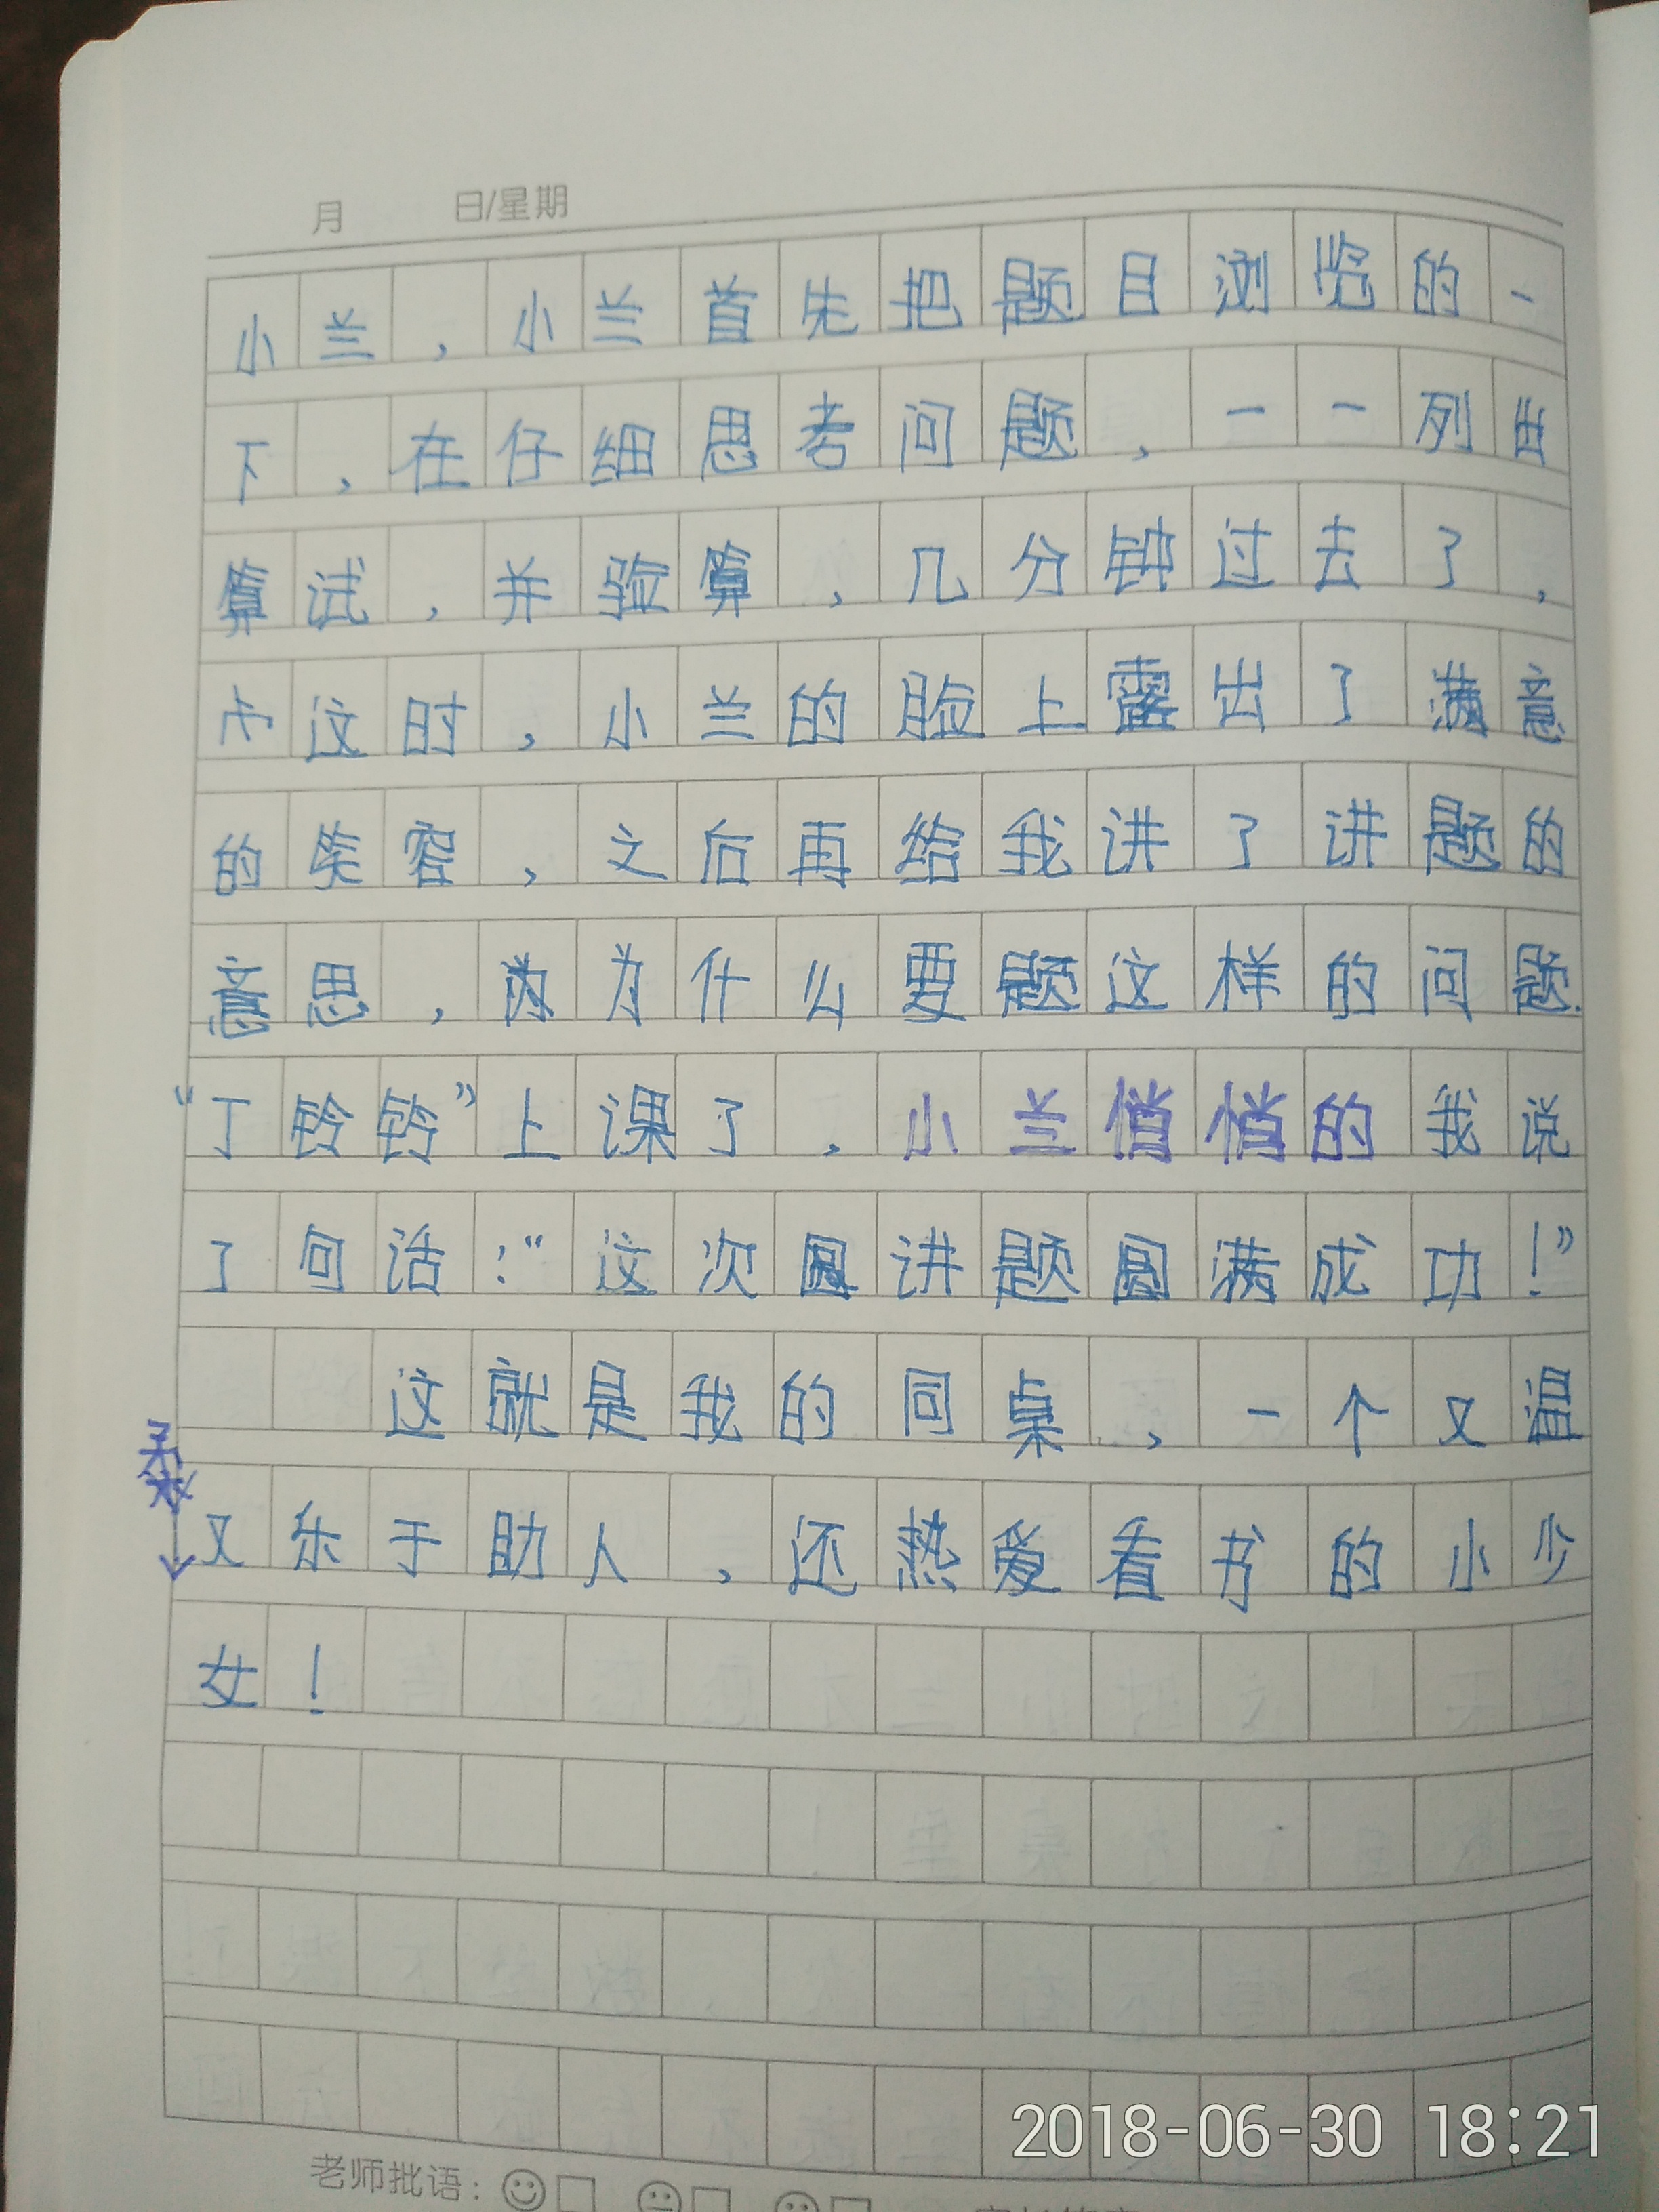 月 日/星期
小兰，小兰首先把题目浏览的一
下，在仔细思考问题，一一列出
算试，并验算，几分钟过去了，
这时，小兰的脸上露出了满意
的笑容，之后再给我讲了讲题的
意思，为什么要题这样的问题.
“丁铃铃”上课了，小兰悄悄的我说
了句话：“这次讲题圆满成功！”
这就是我的同桌，一个又温
柔
又乐于助人，还热爱看书的小少
女！
2018-06-30 18:21
老师批语：